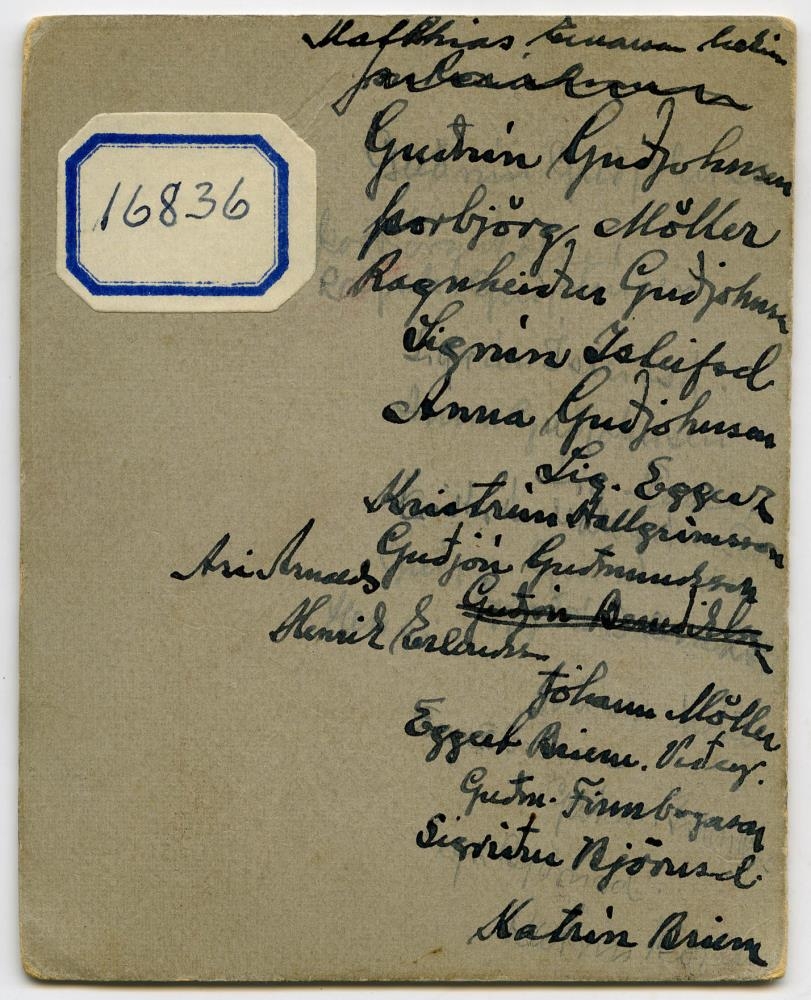 Matthías Einarsson læknir
16836
Guðrún Guðjohnsen
Þorbjörg Möller
Ragnheiður Guðjohnsen
Sigrún Isleifsd
Anna Guðjohnsen
Sig. Eggerz
Kristrún Hallgrímsson
Guðjón Guðmundsson
Ari Arnalds
Guðjón Benedikts
Henrik Erlendss
Jóhann Möller
Eggert Briem. Viðey.
Guðm. Finnbogason
Sigríður Björnsd.
Katrín Briem